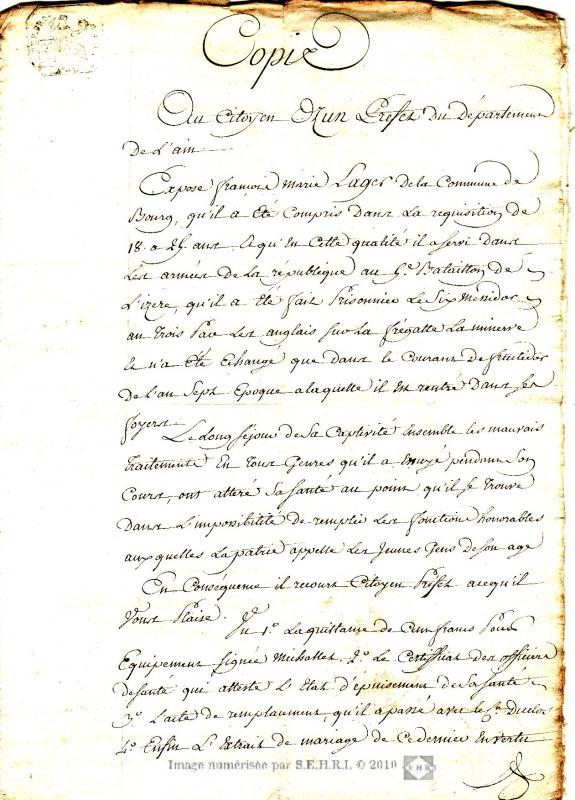 Copie
Au Citoyen Ozun Prefet du Département
de L'ain
Expose françois Marie Lager de la Commune de
Bourg, qu'il a Eté Compris dans La requisition de
18. a 25. ans. & qu'En Cette qualité il a servi dans
Les armées de La république au 5e. Bataillon de
L'izere, qu'il a Eté fait Prisonnier Le Six Messidor
an trois Par Les anglais sur La frégatte La minerve
& n'a Eté Echangé que dans le Courant de fructidor
de L'an Sept Epoque a laquelle il Est rentré dans ses
foyers.
Le long séjour de Sa Captivité Ensemble les mauvais
traitements En tous Genres qu'il a Essuyé pendant Son
Cours, ont altéré Sa santé au point qu'il se trouve
dans L'impossibilité de remplir Les fonctions honorables
auxquelles La patrie appelle Les Jeunes Gens de Son age
En Conséquence il recourt Citoyen Préfet a ce qu'il
Vous Plaise.
Vu 1o. La quittance de Cent francs Pour
Equipement signée 2o. Le Certifficat des officiers
de santé qui atteste L'Etat d'épuisement de Sa Santé
3o. L'acte de remplacement, qu'il a passé avec le Cn. Duclos
4o. Enfin L'Extrait de mariage de Ce dernier En vertu
Image numérisée par S.E.H.R.I. © 2010